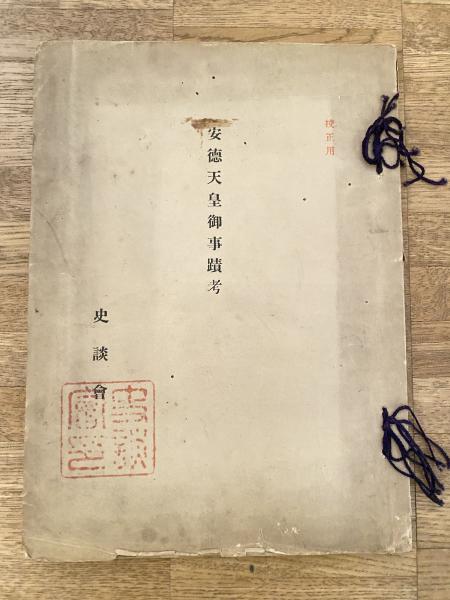 校正用
安德天皇御事蹟考
史談會